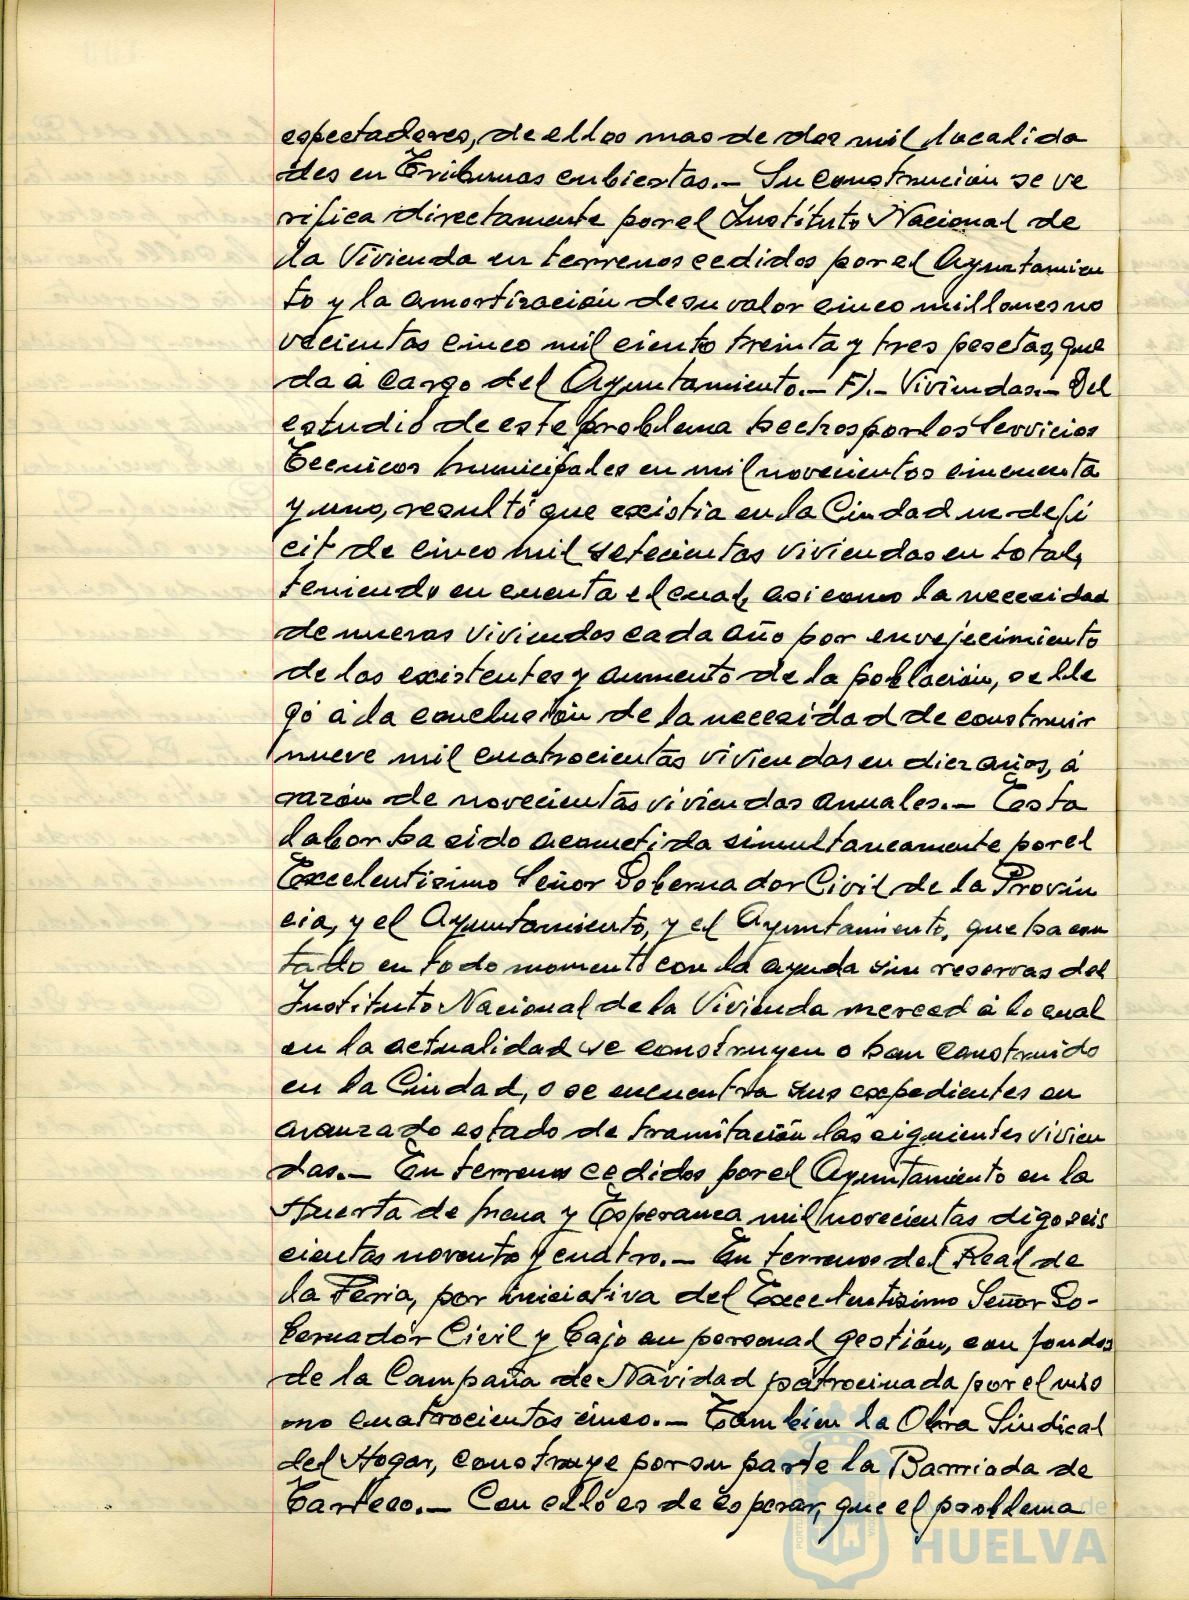 espectadores, de ellos mas de dos mil localida
des en Tribunas cubiertas.- Su construcion se ve
rifica directamente por el Instituto Nacional de
la Vivienda en terrenos cedidos por el Ayuntamien
to y la amortización de su valor cinco millones no
vecientas cinco mil ciento treinta y tres pesetas, que
da á cargo del Ayuntamiento.- F).- Viviendas.- Del
estudio de este problema hechos por los Servicios
Tecnicos Municipales en mil novecientos cincuenta
y uno, resultó que existia en la Ciudad un defi
cit de cinco mil setecientas viviendas en total,
teniendo en cuenta el cual, asi como la necesidad
de nuevas viviendas cada año por envejecimiento
de las existentes y aumento de la población, se lle
gó á la conclusión de la necesidad de construir
nueve mil cuatrocientas viviendas en diez años, á
razón de novecientas viviendas anuales.- Esta
labor ha sido acometida simultaneamente por el
Excelentisimo Señor Gobernador Civil de la Provin
cia, y el Ayuntamiento, y el Ayuntamiento, que ha con
tado en todo momento con la ayuda sin reservas del
Instituto Nacional de la Vivienda merced á lo cual
en la actualidad se construyen o han construido
en la Ciudad, o se encuentra sus expedientes en
avanzado estado de tramitación las siguientes vivien
das.- En terrenos cedidos por el Ayuntamiento en la
Huerta de Mena y Esperanza mil novecientas digo seis
cientas noventa y cuatro.- En terrenos del Real de
la Feria, por iniciativa del Excelentisimo Señor Go-
bernador Civil y bajo su personal gestión, con fondos
de la Campaña de Navidad patrocinada por el mis
mo cuatrocientas cinco.- Tambien la Obra Sindical
del Hogar, construye por su parte la Barriada de
Tarteso.- Con ello es de esperar, que el problema
de
HUELVA